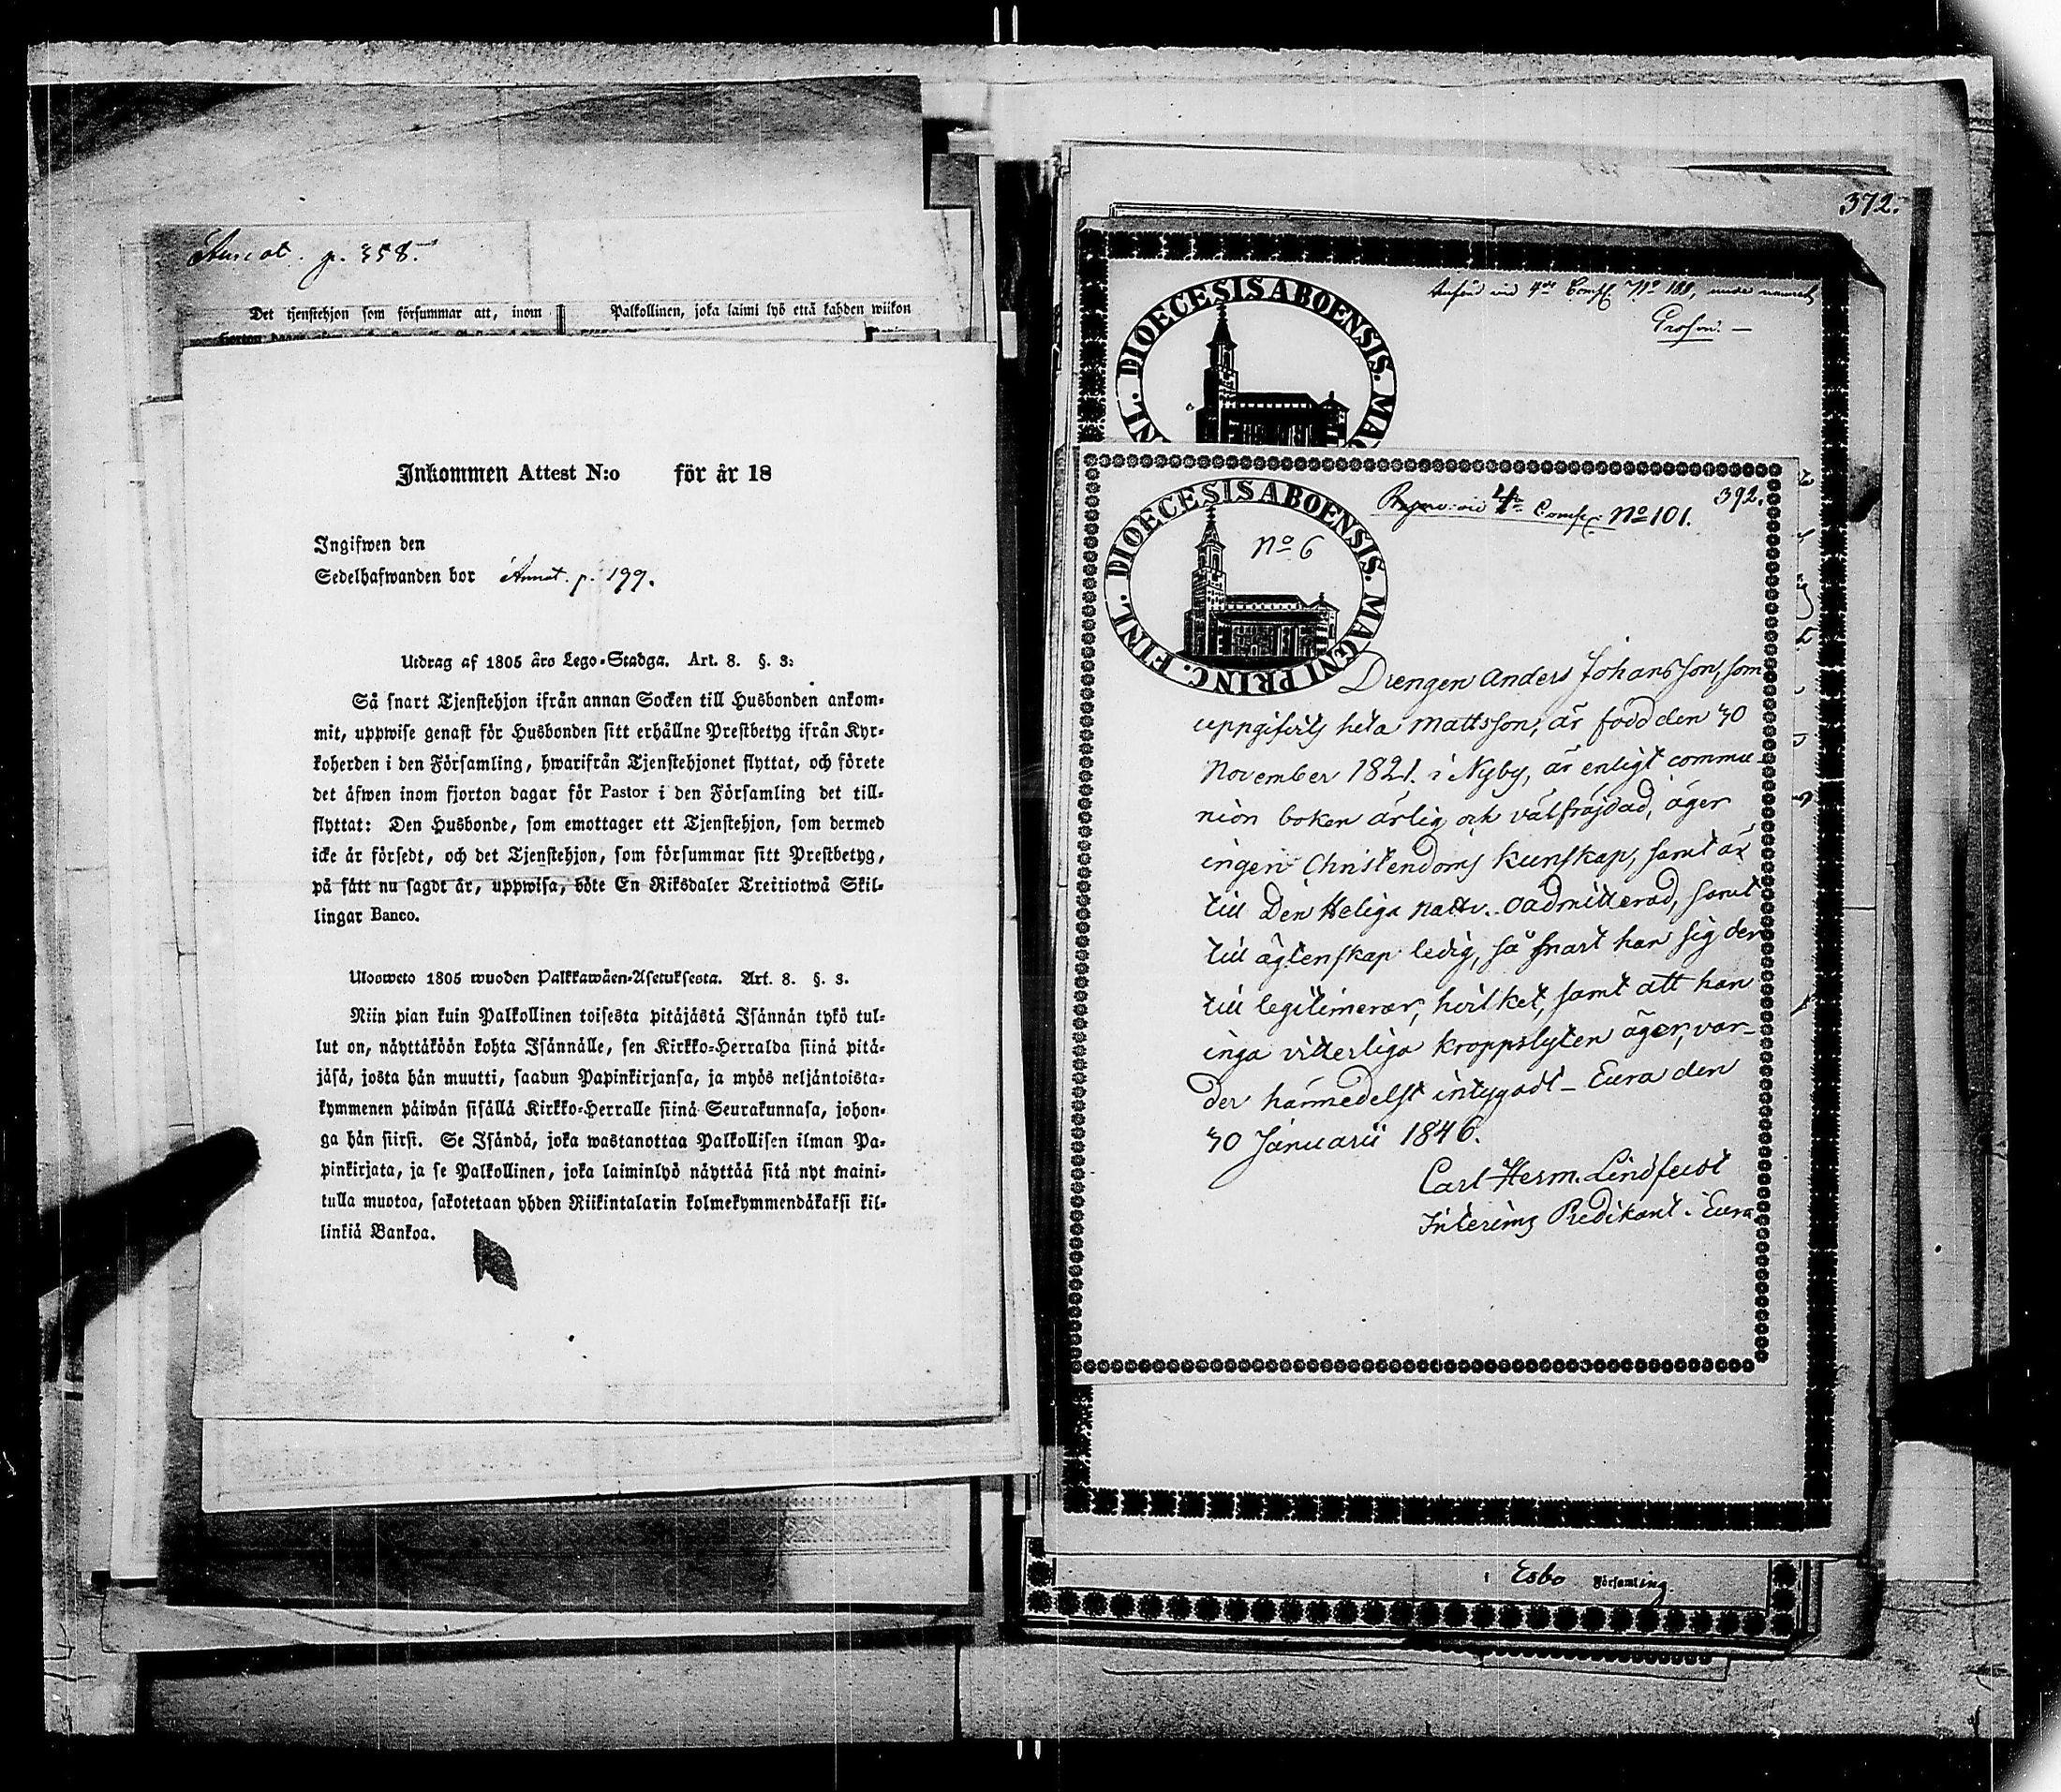 p. 358.
Det tjenstehjon som försummar att, inom
Palkollinen, joka laimi lyö että kahden wiikon
Inkommen Attest N:o för år 18
Ingifwen den
Sedelhafwanden bor Annot. p. 199.
Utdrag af 1805 års Lego-Stadga. Art. 8. §. 3:
Så snart Tjenstehjon ifrån annan Socken till Husbonden ankom-
mit, uppwise genast för Husbonden sitt erhållne Prestbetyg ifrån Kyr-
koherden i den Församling, hwarifrån Tjenstehjonet flyttat, och förete
det äfwen inom fjorton dagar för Pastor i den Församling det till-
flyttat: Den Husbonde, som emottager ett Tjenstehjon, som dermed
icke är försedt, och det Tjenstehjon, som försummar sitt Prestbetyg,
på sätt nu sagdt är, uppwisa, böte En Riksdaler Trettiotwå Skil-
lingar Banco.
Ulosweto 1805 wuoden Palkkawäen-Asetuksesta. Art. 8. §. 3.
Niin pian kuin Palkollinen toisesta pitäjästä Isännän tykö tul-
lut on, näyttäköön kohta Isännälle, sen Kirkko-Herralda siinä pitä-
jäsä, josta hän muutti, saadun Papinkirjansa, ja myös neljäntoista-
kymmenen päiwän sisällä Kirkko-Herralle siinä Seurakunnasa, johon-
ga hän siirsi. Se Isändä, joka wastanottaa Palkollisen ilman Pa-
pinkirjata, ja se Palkollinen, joka laiminlyö näyttää sitä nyt maini-
tulla muotoa, sakotetaan yhden Riikintalarin kolmekymmendäkaksi kil-
linkiä Bankoa.
372.
DIOECESIS ABOENSIS. MAG
INL.
vid 4de Comp. No 188, under namnet
392.
vid 4de Comp. No 101.
DIOECESIS ABOENSIS. MAGNI PRINC. FINL.
No 6
Drengen Anders Johansson, som
uppgifvits heta Mattsson, är född den 30
November 1821. i Nyby, är enligt commu-
nion boken ärlig och välfräjdad, äger
ingen Christendoms kunskap, samt är
till Den Heliga Nattv. oadmitterad, samt
till ägtenskap ledig, så snart han sig der
till legitimerar, hvilket, samt att han
inga vitterliga kroppslyten äger, var-
der härmedelst intygadt – Eura den
30 Januarii 1846.
Carl Herm. Lindstedt
Interims Predikant i Eura
i Esbo Församling.